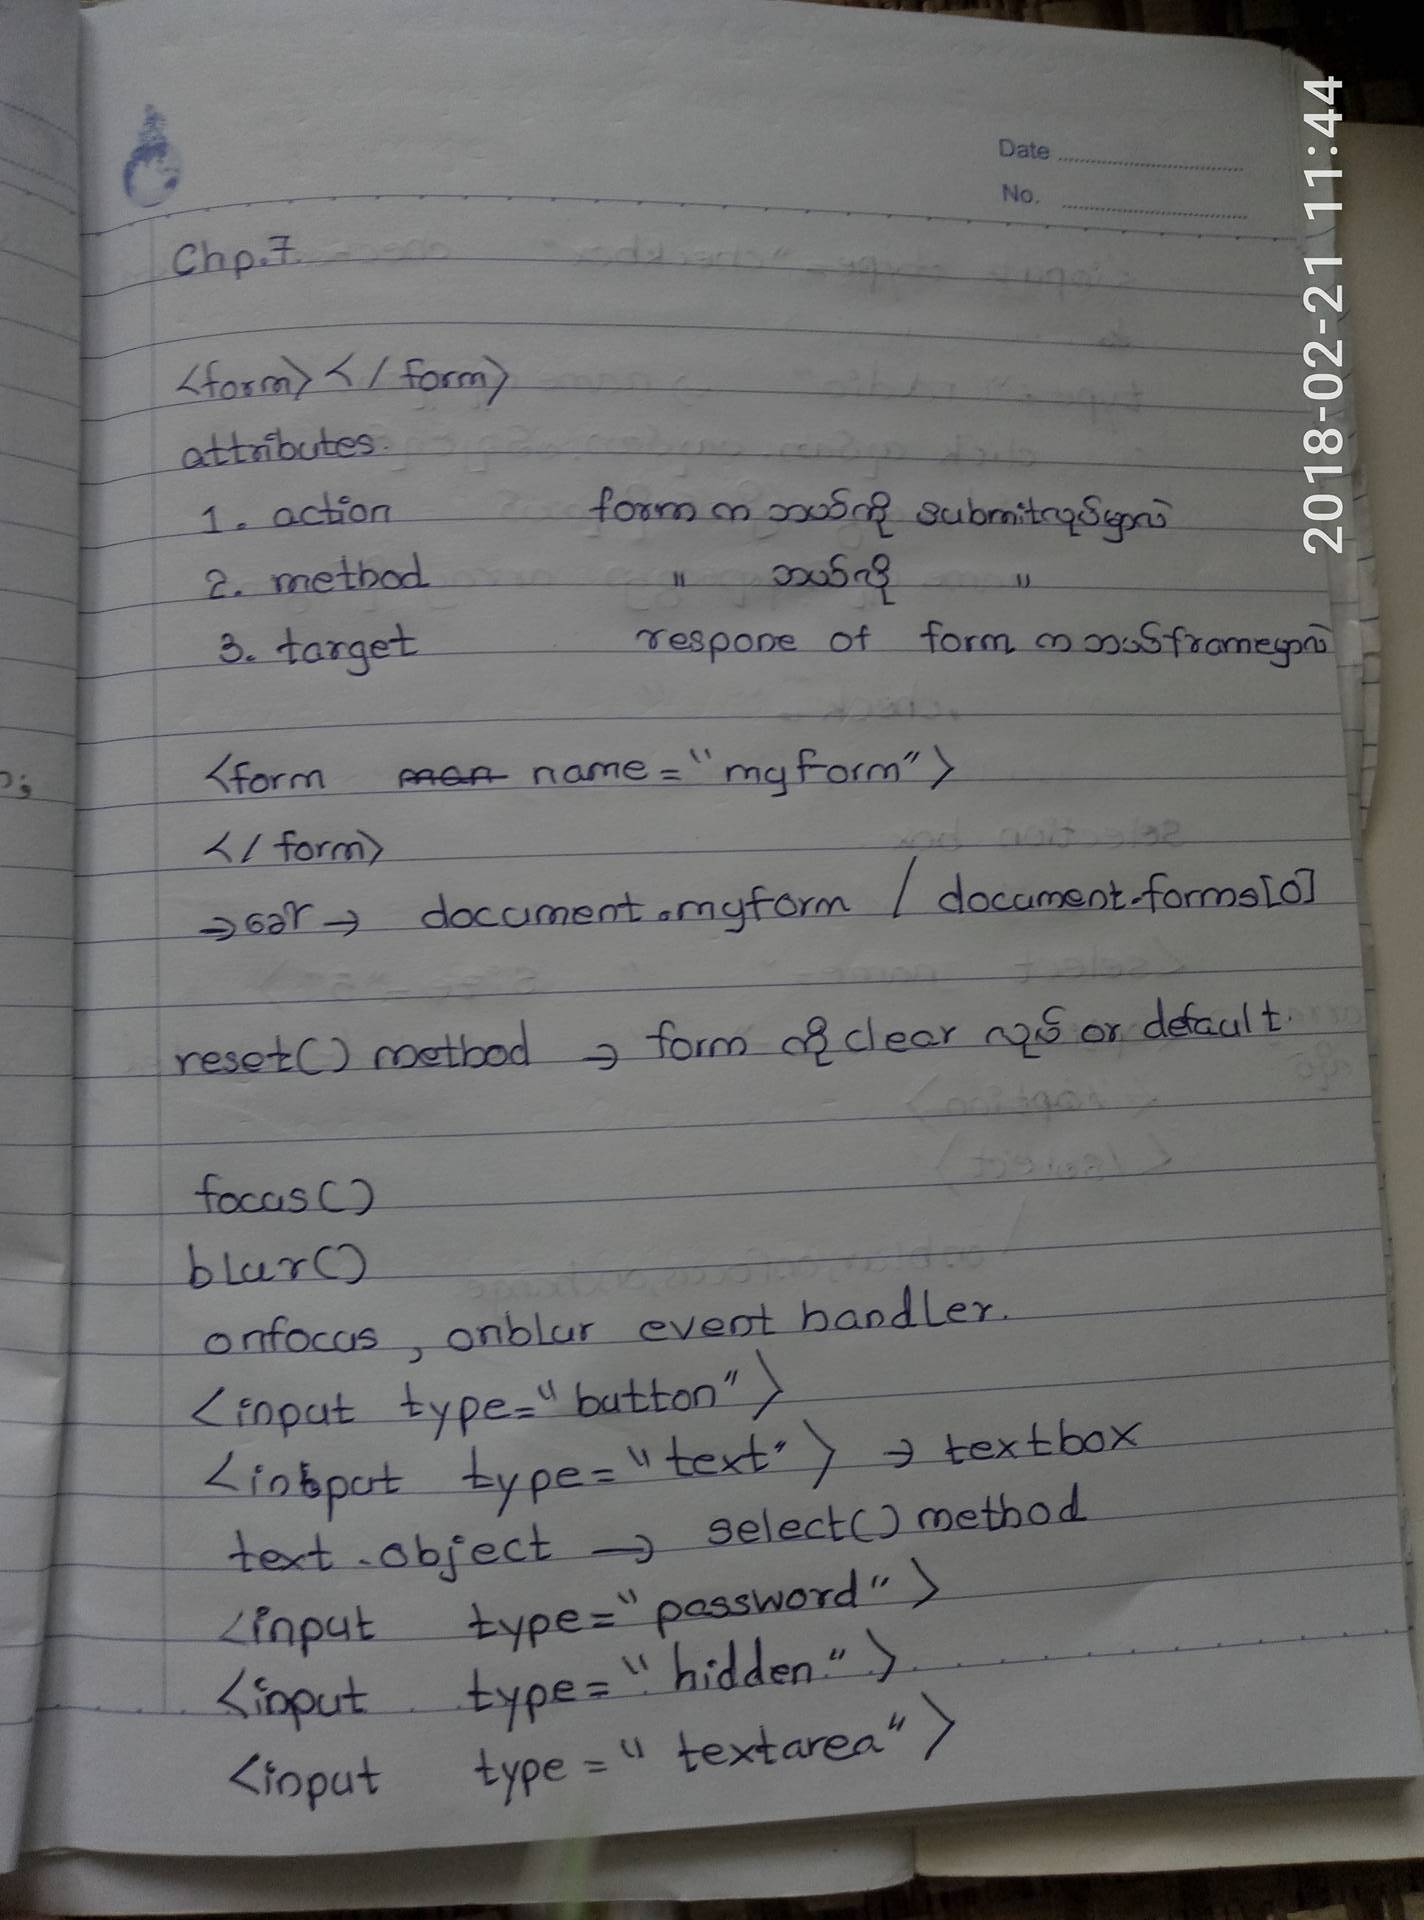 Date
No.
Chp.7
<form></form>
attributes.
1. action form က ဘယ်ကို submitလုပ်မှာလဲ
2. method " ဘယ်လို "
3. target respone of form က ဘယ်frameမှာလဲ
<form name="myform">
</form>
→ခေါ်→ document.myform / document.forms[0]
reset() method → form ကို clear လုပ် or default.
focus()
blur()
onfocus, onblur event handler.
<input type="button">
<input type="text"> → textbox
text.object → select() method
<input type="password">
<input type="hidden">
<input type="textarea">
2018-02-21 11:44